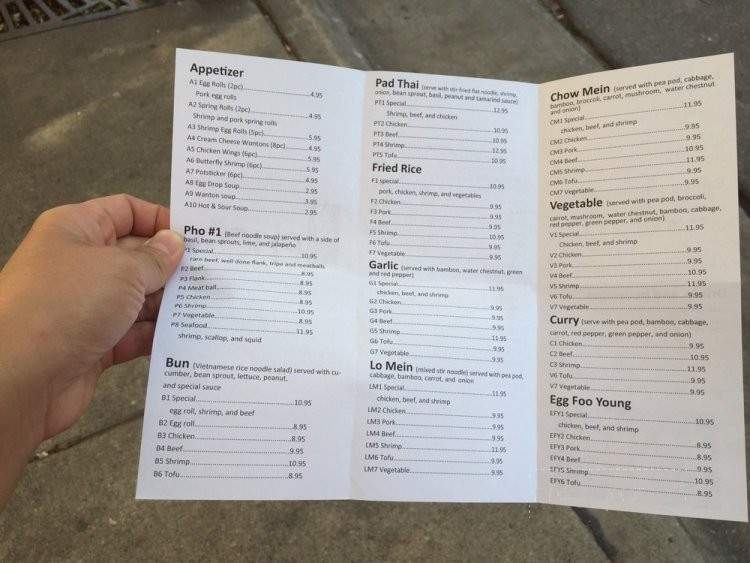 Appetizer
A1 Egg Rolls (2pc)........4.95
Pork egg rolls
A2 Spring Rolls (2pc)........
Shrimp and pork spring rolls
A3 Shrimp Egg Rolls (5pc)........5.95
A4 Cream Cheese Wontons (8pc)........4.95
A5 Chicken Wings (6pc)........5.95
A6 Butterfly Shrimp (6pc)........5.95
A7 Potsticker (6pc)........4.95
A8 Egg Drop Soup........2.95
A9 Wanton soup........3.95
A10 Hot & Sour Soup........2.95
Pho #1 (Beef noodle soup) served with a side of
basil, bean sprouts, lime, and jalapeño
P1 Special........10.95
rare beef, well done flank, tripe and meatballs
P2 Beef........8.95
P3 Flank........8.95
P4 Meat ball........8.95
P5 Chicken........8.95
P6 Shrimp........10.95
P7 Vegetable........8.95
P8 Seafood........11.95
shrimp, scallop, and squid
Bun (Vietnamese rice noodle salad) served with cu-
cumber, bean sprout, lettuce, peanut,
and special sauce
B1 Special........10.95
egg roll, shrimp, and beef
B2 Egg roll........8.95
B3 Chicken........8.95
B4 Beef........9.95
B5 Shrimp........10.95
B6 Tofu........8.95
Pad Thai (serve with stir-fried flat noodle, shrimp,
onion, bean sprout, basil, peanut and tamarind sauce)
PT1 Special........12.95
Shrimp, beef, and chicken
PT2 Chicken........10.95
PT3 Beef........10.95
PT4 Shrimp........12.95
PT5 Tofu........10.95
Fried Rice
F1 special........10.95
pork, chicken, shrimp, and vegetables
F2 Chicken........9.95
F3 Pork........9.95
F4 Beef........9.95
F5 Shrimp........10.95
F6 Tofu........9.95
F7 Vegetable........9.95
Garlic (served with bamboo, water chestnut, green
and red pepper)
G1 Special........11.95
chicken, beef, and shrimp
G2 Chicken........9.95
G3 Pork........9.95
G4 Beef........9.95
G5 Shrimp........11.95
G6 Tofu........9.95
G7 Vegetable........9.95
Lo Mein (mixed stir noodle) served with pea pod,
cabbage, bamboo, carrot, and onion
LM1 Special........11.95
chicken, beef, and shrimp
LM2 Chicken........9.95
LM3 Pork........9.95
LM4 Beef........9.95
LM5 Shrimp........11.95
LM6 Tofu........9.95
LM7 Vegetable........9.95
Chow Mein (served with pea pod, cabbage,
bamboo, broccoli, carrot, mushroom, water chestnut
and onion)
CM1 Special........11.95
chicken, beef, and shrimp
CM2 Chicken........9.95
CM3 Pork........9.95
CM4 Beef........10.95
CM5 Shrimp........11.95
CM6 Tofu........9.95
CM7 Vegetable........9.95
Vegetable (served with pea pod, broccoli,
carrot, mushroom, water chestnut, bamboo, cabbage,
red pepper, green pepper, and onion)
V1 Special........11.95
Chicken, beef, and shrimp
V2 Chicken........9.95
V3 Pork........9.95
V4 Beef........10.95
V5 Shrimp........11.95
V6 Tofu........9.95
V7 Vegetable........9.95
Curry (serve with pea pod, bamboo, cabbage,
carrot, red pepper, green pepper, and onion)
C1 Chicken........9.95
C2 Beef........10.95
C3 Shrimp........11.95
V6 Tofu........9.95
V7 Vegetable........9.95
Egg Foo Young
EFY1 Special........10.95
chicken, beef, and shrimp
EFY2 Chicken........8.95
EFY3 Pork........8.95
EFY4 Beef........9.95
EFY5 Shrimp........10.95
EFY6 Tofu........8.95